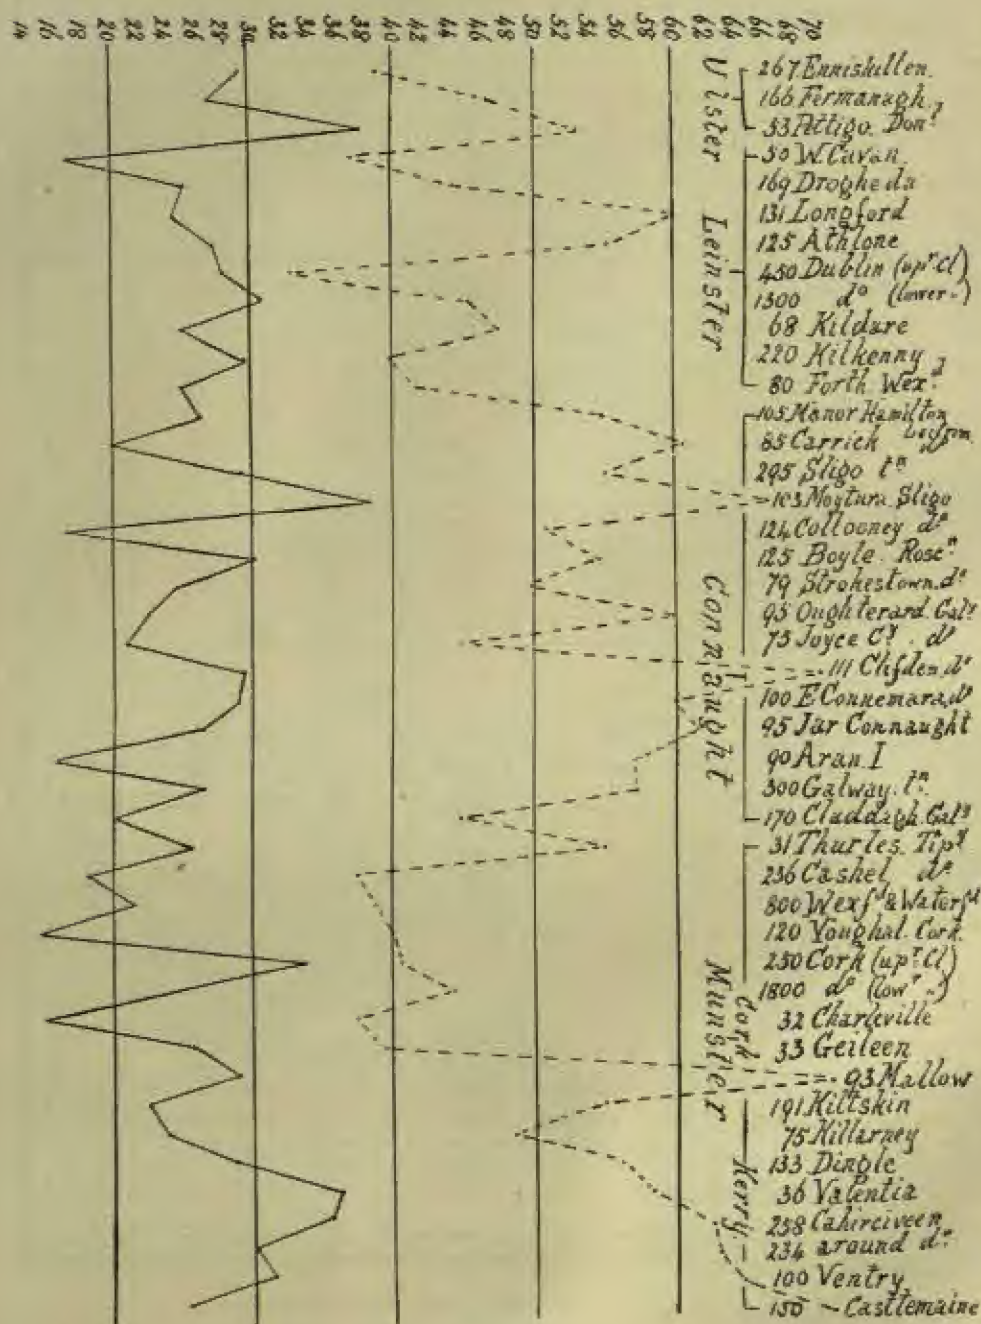 14 16 18 20 22 24 26 28 30 32 34 36 38 40 42 44 46 48 50 52 54 56 58 60 62 64 66 68 70
Ulster
267 Enniskillen.
166 Fermanagh.
53 Pettigo. Don.l
Leinster
50 W. Cavan.
169 Drogheda
131 Longford
125 Athlone
450 Dublin (up.r Cl)
1300 do (lower „)
68 Kildare
220 Kilkenny
80 Forth. Wex.d
Connaught
105 Manor Hamilton
85 Carrick
295 Sligo t.n
103 Moytura. Sligo
124 Collooney do
125 Boyle. Rosc.n
79 Strokestown. do
95 Oughterard. Gal.y
75 Joyce C.y . do
111 Clifden. do
100 E Connemara, do
95 Jar Connaught
90 Aran. I
300 Galway. t.n
170 Claddagh. Gal.y
Munster
31 Thurles. Tip.y
236 Cashel, do
800 Wexf.d & Waterf.d
120 Youghal. Cork.
Cork
250 Cork (up.r Cl)
1800 do (low.r „)
32 Charleville
33 Geileen
93 Mallow
191 Kiltskin
Kerry
75 Killarney
133 Dingle
36 Valentia
258 Cahirciveen
234 around do
100 Ventry
150 Casttemaine